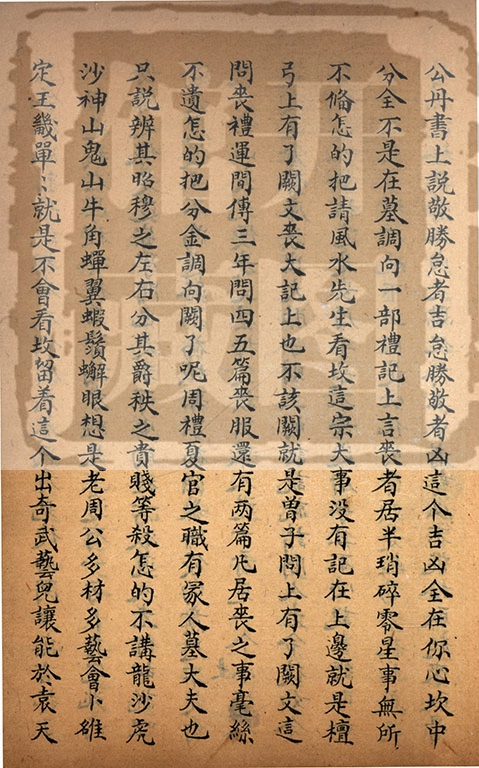 公丹書上説敬勝怠者吉怠勝敬者凶這个吉凶全在你心坎中
分全不是在墓調向一部禮記上言喪者居半瑣碎零星事無所
不俻怎的把請風水先生看坟這宗大事没有記在上邊就是檀
弓上有了闕文喪大記上也不該闕就是曽子問上有了闕文這
問喪禮運間傳三年問四五篇喪服還有两篇凢居喪之事毫絲
不遺怎的把分金調向闕了呢周禮夏官之職有冢人墓大夫也
只説辨其昭穆之左右分其爵秩之貴賤等殺怎的不講龍沙虎
沙神山鬼山牛角蟬翼蝦鬚蠏眼想是老周公多材多藝會卜雒
定王畿單〻就是不會看坟留着這个出奇武藝兒讓能於袁天